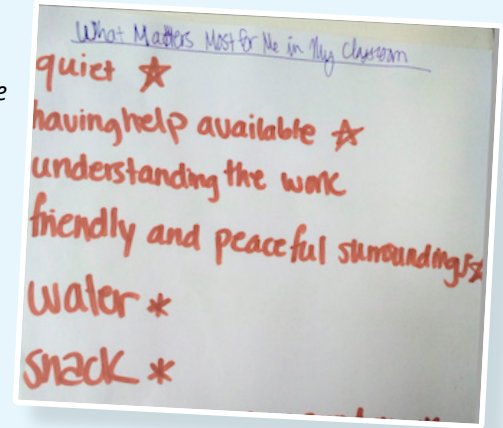 What Matters Most for Me in My Classroom
quiet ☆
having help available ☆
understanding the work
friendly and peaceful surroundings ☆
water *
snack *
e